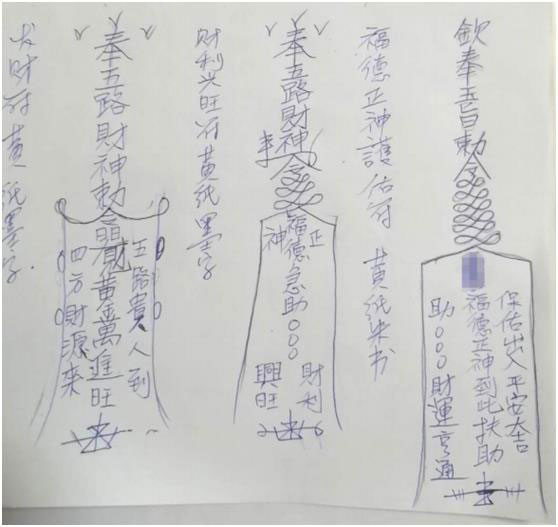 欽奉吾旨勅令
保佑出入平安大吉
福德正神到此扶助
助○○○財運亨通
福德正神護佑符 黄纸朱书
奉五路財神勅令
正神
福德急助○○○
財利
興旺
財利兴旺符黄纸墨字
奉五路財神勅令
五路貴人到
財黄金萬進旺
四方財源来
发財符 黄纸墨字.